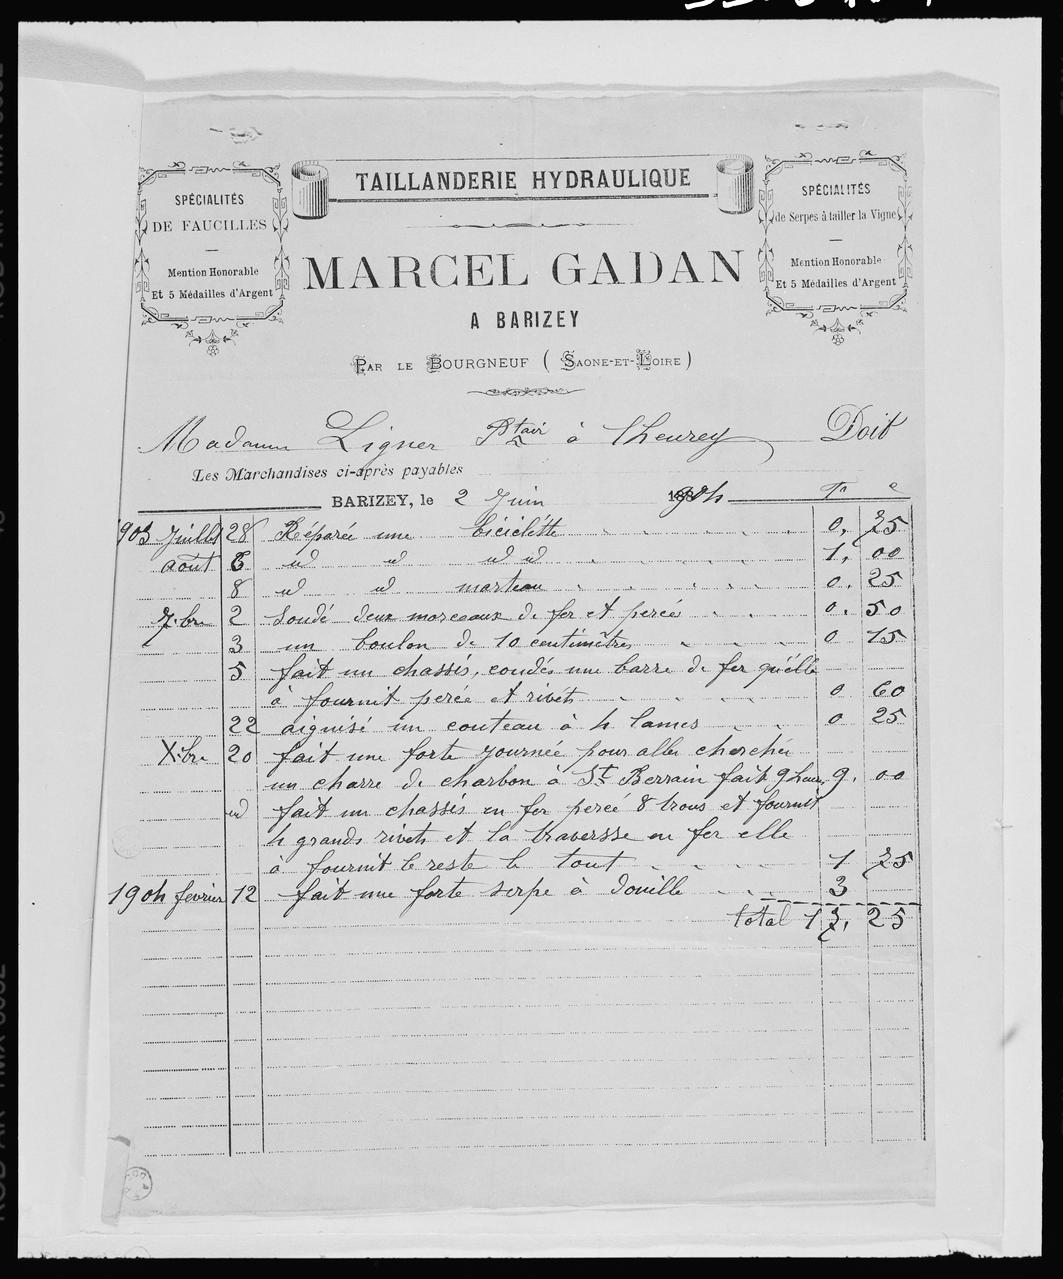 SPÉCIALITÉS
DE FAUCILLES
Mention Honorable
Et 5 Médailles d'Argent
TAILLANDERIE HYDRAULIQUE
MARCEL GADAN
A BARIZEY
PAR LE BOURGNEUF (SAONE-ET-LOIRE)
SPÉCIALITÉS
de Serpes à tailler la Vigne
Mention Honorable
Et 5 Médailles d'Argent
Madame Ligner Ptair à Cheurey Doit
Les Marchandises ci-après payables
BARIZEY, le 2 Juin 1904 Fr c
903 Juillet 28 Réparée une biciclétte 0, 75
aout 6 id id id id 1, 00
8 id id marteau 0, 25
7.bre 2 Soudé deux morceaux de fer et percée 0, 50
3 un boulon de 10 centimètres 0 15
5 fait un chassis, coudés une barre de fer qu'elle
à fournit percée et rivéts 0 60
22 aiguisé un couteau à 4 lames 0 25
X.bre 20 fait une forte journeé pour aller cherchée
un charre de charbon a St Berrain fait 9 heures 9. 00
id fait un chassis en fer perce 8 trous et fournit
4 grands rivets et la traversse en fer elle
à fournit le reste le tout 1 75
1904 fevrier 12 fait une forte serpe à douille 3
total 17, 25